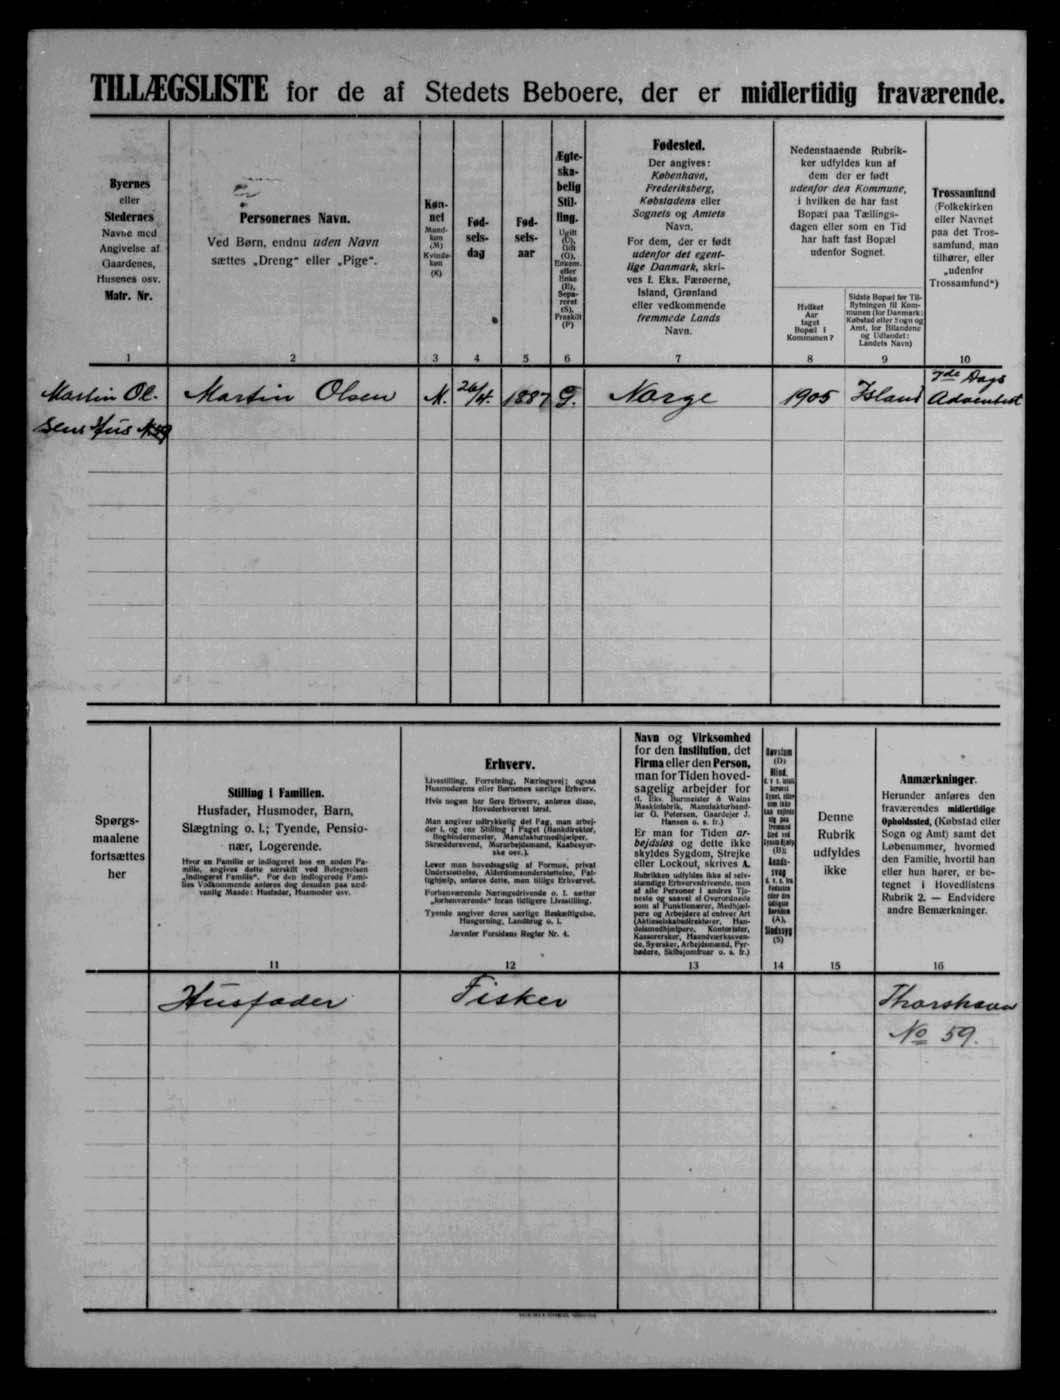 TILLÆGSLISTE for de af Stedets Beboere, der er midlertidig fraværende.
Byernes
eller
Stedernes
Navne med
Angivelse af
Gaardenes,
Husenes osv.
Matr. Nr.
1
Personernes Navn.
Ved Børn, endnu uden Navn
sættes „Dreng“ eller „Pige“.
2
Køn-
net
Mand-
køn
(M)
Kvinde-
køn
(K)
3
Fød-
sels-
dag
4
Fød-
sels-
aar
5
Ægte-
ska-
belig
Stil-
ling.
Ugift
(U),
Gift
(G),
Enkem.
eller
Enke
(E),
Sepa-
reret
(S),
Fraskilt
(F)
6
Fødested.
Der angives:
København,
Frederiksberg,
Købstadens eller
Sognets og Amtets
Navn.
For dem, der er født
udenfor det egent-
lige Danmark, skri-
ves f. Eks. Færøerne,
Island, Grønland
eller vedkommende
fremmede Lands
Navn.
7
Nedenstaaende Rubrik-
ker udfyldes kun af
dem der er født
udenfor den Kommune,
i hvilken de har fast
Bopæl paa Tællings-
dagen eller som en Tid
har haft fast Bopæl
udenfor Sognet.
Hvilket
Aar
taget
Bopæl i
Kommunen?
8
Sidste Bopæl før Til-
flytningen til Kom-
munen (for Danmark:
Købstad eller Sogn og
Amt, for Bilandene
og Udlandet:
Landets Navn)
9
Trossamfund
(Folkekirken
eller Navnet
paa det Tros-
samfund, man
tilhører, eller
„udenfor
Trossamfund“)
10
Martin Ol- Martin Olsen M. 26/4. 1887 G. Norge 1905 Island 7de Dags
Adventist
sens Hus No 59
Spørgs-
maalene
fortsættes
her
Stilling i Familien.
Husfader, Husmoder, Barn,
Slægtning o. l.; Tyende, Pensio-
nær, Logerende.
Hvor en Familie er indlogeret hos en anden Fa-
milie, angives dette særskilt ved Betegnelsen
„indlogeret Familie“. For den indlogerede Fami-
lies Vedkommende anføres dog desuden paa sæd-
vanlig Maade: Husfader, Husmoder osv.
11
Erhverv.
Livsstilling, Forretning, Næringsvej; ogsaa
Husmoderens eller Børnenes særlige Erhverv.
Hvis nogen har flere Erhverv, anføres disse,
Hovederhvervet først.
Man angiver udtrykkelig det Fag, man arbej-
der i, og ens Stilling i Faget (Bankdirektør,
Bogbindermester, Manufakturmedhjælper,
Skræddersvend, Murarbejdsmand, Kaabesyer-
ske osv.).
Lever man hovedsagelig af Formue, privat
Understøttelse, Alderdomsunderstøttelse, Fat-
tighjælp, anføres dette, men tillige Erhvervet.
Forhenværende Næringsdrivende o. l. sætter
„forhenværende“ foran tidligere Livsstilling.
Tyende angiver deres særlige Beskæftigelse,
Husgerning, Landbrug o. l.
Jævnfør Forsidens Regler Nr. 4.
12
Navn og Virksomhed
for den Institution, det
Firma eller den Person,
man for Tiden hoved-
sagelig arbejder for
(f. Eks. Burmeister & Wains
Maskinfabrik, Manufakturhand-
ler G. Petersen, Gaardejer J.
Hansen o. s. fr.)
Er man for Tiden ar-
bejdsløs og dette ikke
skyldes Sygdom, Strejke
eller Lockout, skrives A.
Rubrikken udfyldes ikke af selv-
stændige Erhvervsdrivende, men
af alle Personer i andres Tje-
neste og saavel af Overordnede
som af Funktionærer, Medhjæl-
pere og Arbejdere af enhver Art
(Aktieselskabsdirektører, Han-
delsmedhjælpere, Kontorister,
Kassererske, Haandværkssven-
de, Syersker, Arbejdsmænd, Fyr-
bødere, Skibsjomfruer o. s. fr.)
13
Døvstum
(D)
Blind,
(B);
Aands-
svag
(A),
Sindssyg
(S)
14
Denne
Rubrik
udfyldes
ikke
15
Anmærkninger.
Herunder anføres den
fraværendes midlertidige
Opholdssted, (Købstad eller
Sogn og Amt) samt det
Løbenummer, hvormed
den Familie, hvortil han
eller hun hører, er be-
tegnet i Hovedlistens
Rubrik 2. — Endvidere
andre Bemærkninger.
16
Husfader Fisker Thorshavn
No 59.